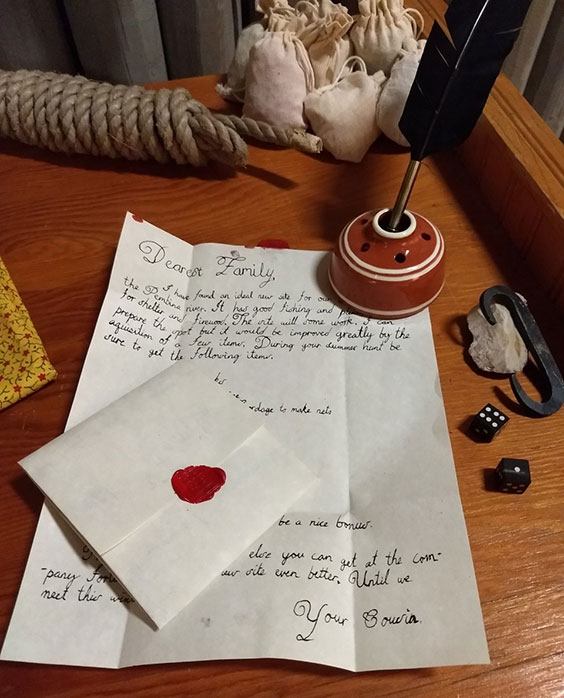 Dearest Family,
I have found an ideal new site for our
the Pembina river. It has good fishing and
for shelter and firewood. The site will some work. I can
prepare the spot but it would be improved greatly by the
aquisition of a few items. During your summer hunt be
sure to get the following items.
to make nets
be a nice bonus.
else you can get at the com-
-pany site even better. Until we
meet this
Your Cousin.